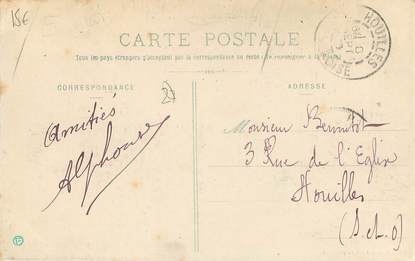 15€
CARTE POSTALE
Tous les pays étrangers n'acceptent pas la correspondance au recto
CORRESPONDANCE
ADRESSE
HOUILLES
Amitiés
Alphonse
Monsieur
3 Rue de l'Eglise
Houilles
(S.et.O)